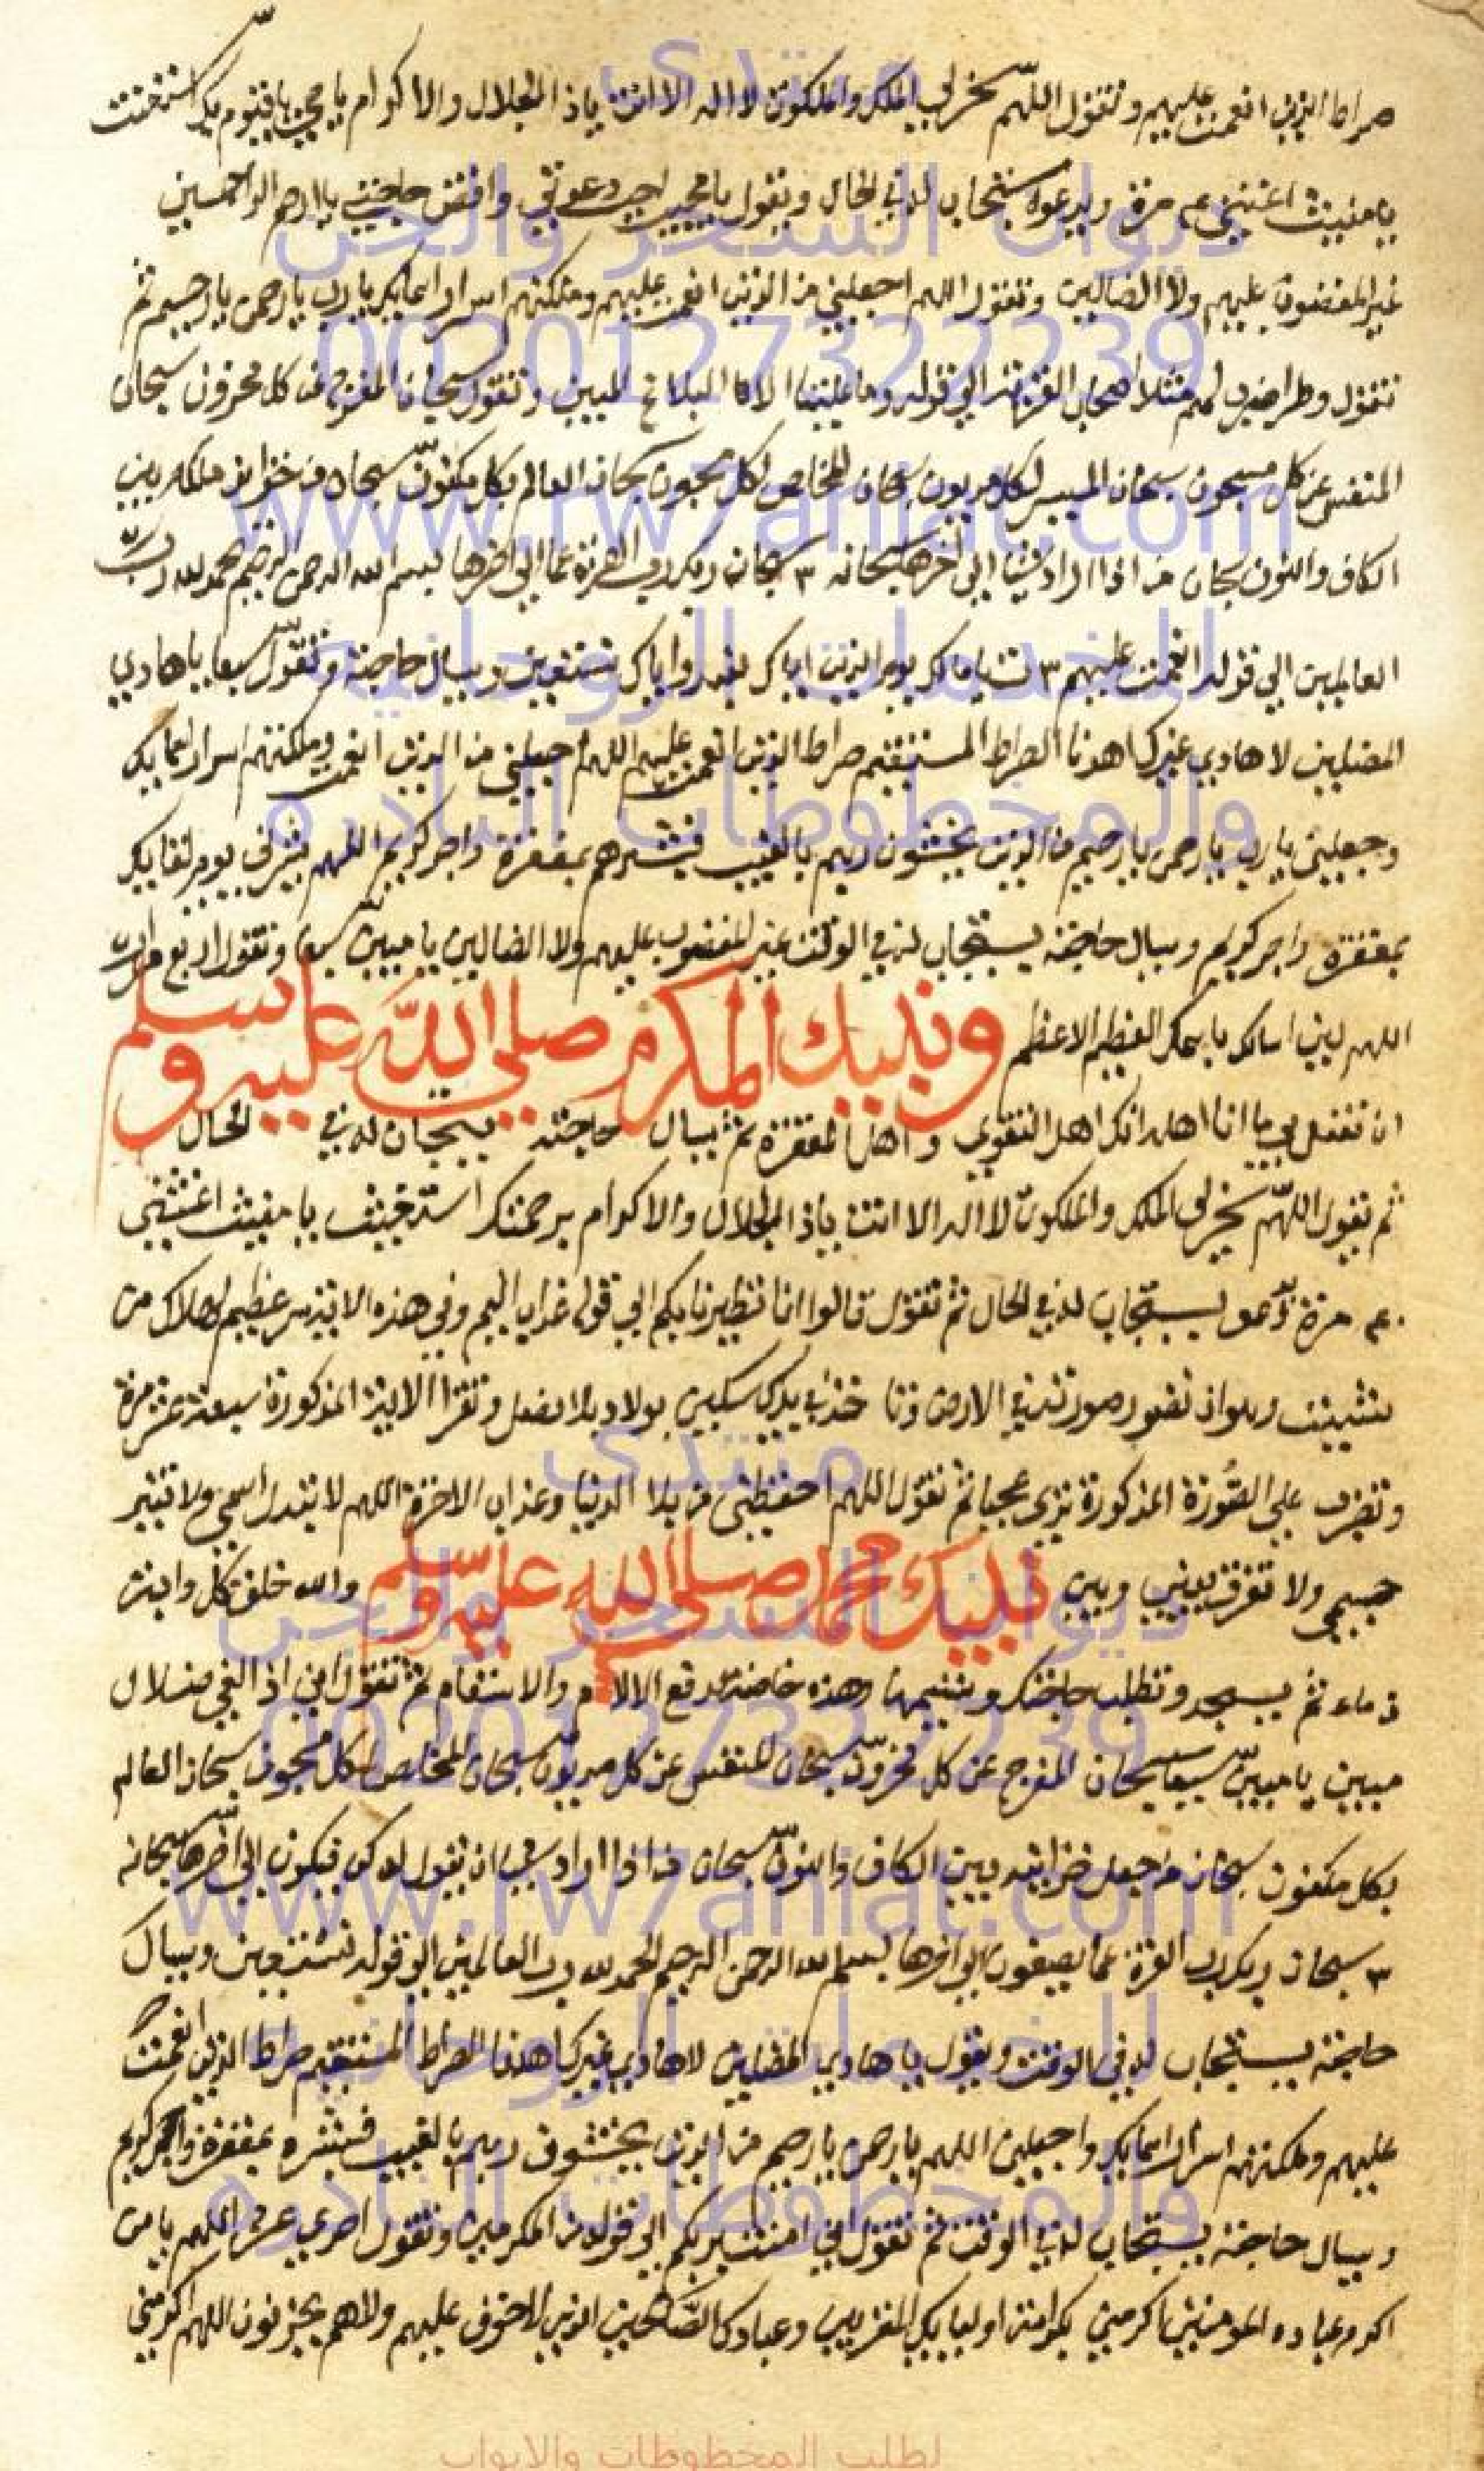 صراط الذين انعمت عليهم وتقول اللهم سخر لي الملك والملكوت لا اله الا انت ياذا الجلال والاكرام يا قيوم بك استغثت
يا مغيث اغثني مرة ويدعوا يستجاب له في الحال ويقول يا مجيب اجب دعوتي واقض حاجتي يا ارحم الراحمين
غير المغضوب عليهم ولا الضالين وتقول اللهم اجعلني من الذين انعمت عليهم وملكتهم اسرار اسمايك يا رب يا رحمن يا رحيم ثم
تقول واضرب لهم مثلا اصحاب القرية الي قوله وما علينا الا البلاغ المبين وتقول سبحان المفرج عن كل محزون سبحان
المنفس عن كل مسجون سبحان الميسر لكل مديون سبحان المخلص لكل مسجون سبحان العالم بكل مكنون سبحان من خزاينه ملكه بين
الكاف والنون سبحان من اذا اراد شيا الي اخرها سبحانه ٣ سبحان ربك رب العزة عما الي اخرها بسم الله الرحمن الرحيم الحمد لله رب
العالمين الي قوله انعمت عليهم ٣ مالك يوم الدين اياك نعبد واياك نستعين ويسال حاجته وتقول سبعا يا هادي
المضلين لا هادي غيرك اهدنا الصراط المستقيم صراط الذين انعمت عليهم اللهم اجعلني من الذين انعمت وملكتهم اسرار اسمايك
وجعلني يا رب يا رحمن يا رحيم من الذين يخشون ربهم بالغيب فبشرهم بمغفرة واجر كريم اللهم بشرني يوم لقايك
بمغفرة واجر كريم ويسال حاجته يستجاب له في الوقت غير المغضوب عليهم ولا الضالين يا مبين وتقول اربع مرات
اللهم اني اسالك باسمك العظيم الاعظم ونبيك المكرم صلي الله عليه وسلم
ان تفعل بي ما انت اهله انك اهل التقوي واهل المغفرة ثم يسال حاجته يستجاب له في الحال
ثم يقول اللهم سخر لي الملك والملكوت لا اله الا انت ياذا الجلال والاكرام برحمتك استغيث يا مغيث اغثني
مرة يستجاب له في الحال ثم تقول قالوا انا تطيرنا بكم الي قوله عذاب اليم وفي هذه الاية سر عظيم لهلاك من
شيت وهو ان تصور صورته في الارض خذ في يدك سكين بولاد وتقرا الاية المذكورة سبعة عشر مرة
وتضرب علي الصورة المذكورة تري عجبا ثم تقول اللهم احفظني من بلا الدنيا وعذاب الاخرة اللهم لا تبدل اسمي ولا تغير
جسمي ولا تفرق بيني وبين نبيك محمد صلي الله عليه وسلم والله خلق كل دابة
من ماء ثم يسجد وتطلب حاجتك وهذه خاصة لدفع الالام والاسقام ثم تقول اني اذا لفي ضلال
مبين يا مبين سبعا سبحان المفرج عن كل محزون سبحان المنفس عن كل مديون سبحان المخلص لكل مسجون سبحان العالم
بكل مكنون سبحان من جعل خزاينه بين الكاف والنون سبحان من اذا اراد شيا ان يقول له كن فيكون الي اخرها سبحانه
٣ سبحان ربك رب العزة عما يصفون الي اخرها بسم الله الرحمن الرحيم الحمد لله رب العالمين الي قوله نستعين ويسال
حاجته يستجاب له في الوقت ويقول يا هادي المضلين لا هادي غيرك اهدنا الصراط المستقيم صراط الذين انعمت
عليهم وملكتهم اسرار اسمايك واجعلني اللهم يا رحمن يا رحيم من الذين يخشون ربهم بالغيب فبشره بمغفرة واجر كريم
ويسال حاجته يستجاب له في الوقت ثم تقول اني امنت بربكم الي قوله من المكرمين وتقول احدي عشر اللهم يا من
اكرم عباده المومنين اكرمني بكرامة اوليايك المقربين وعبادك الصالحين الذين لا خوف عليهم ولا هم يحزنون اللهم اكرمني
منتدى
ديوان السحر والجن
0020127322239
www.rw7aniat.com
للخدمات الروحانيه
والمخطوطات النادره
منتدى
ديوان السحر والجن
0020127322239
www.rw7aniat.com
للخدمات الروحانيه
والمخطوطات النادره
لطلب المخطوطات والابواب